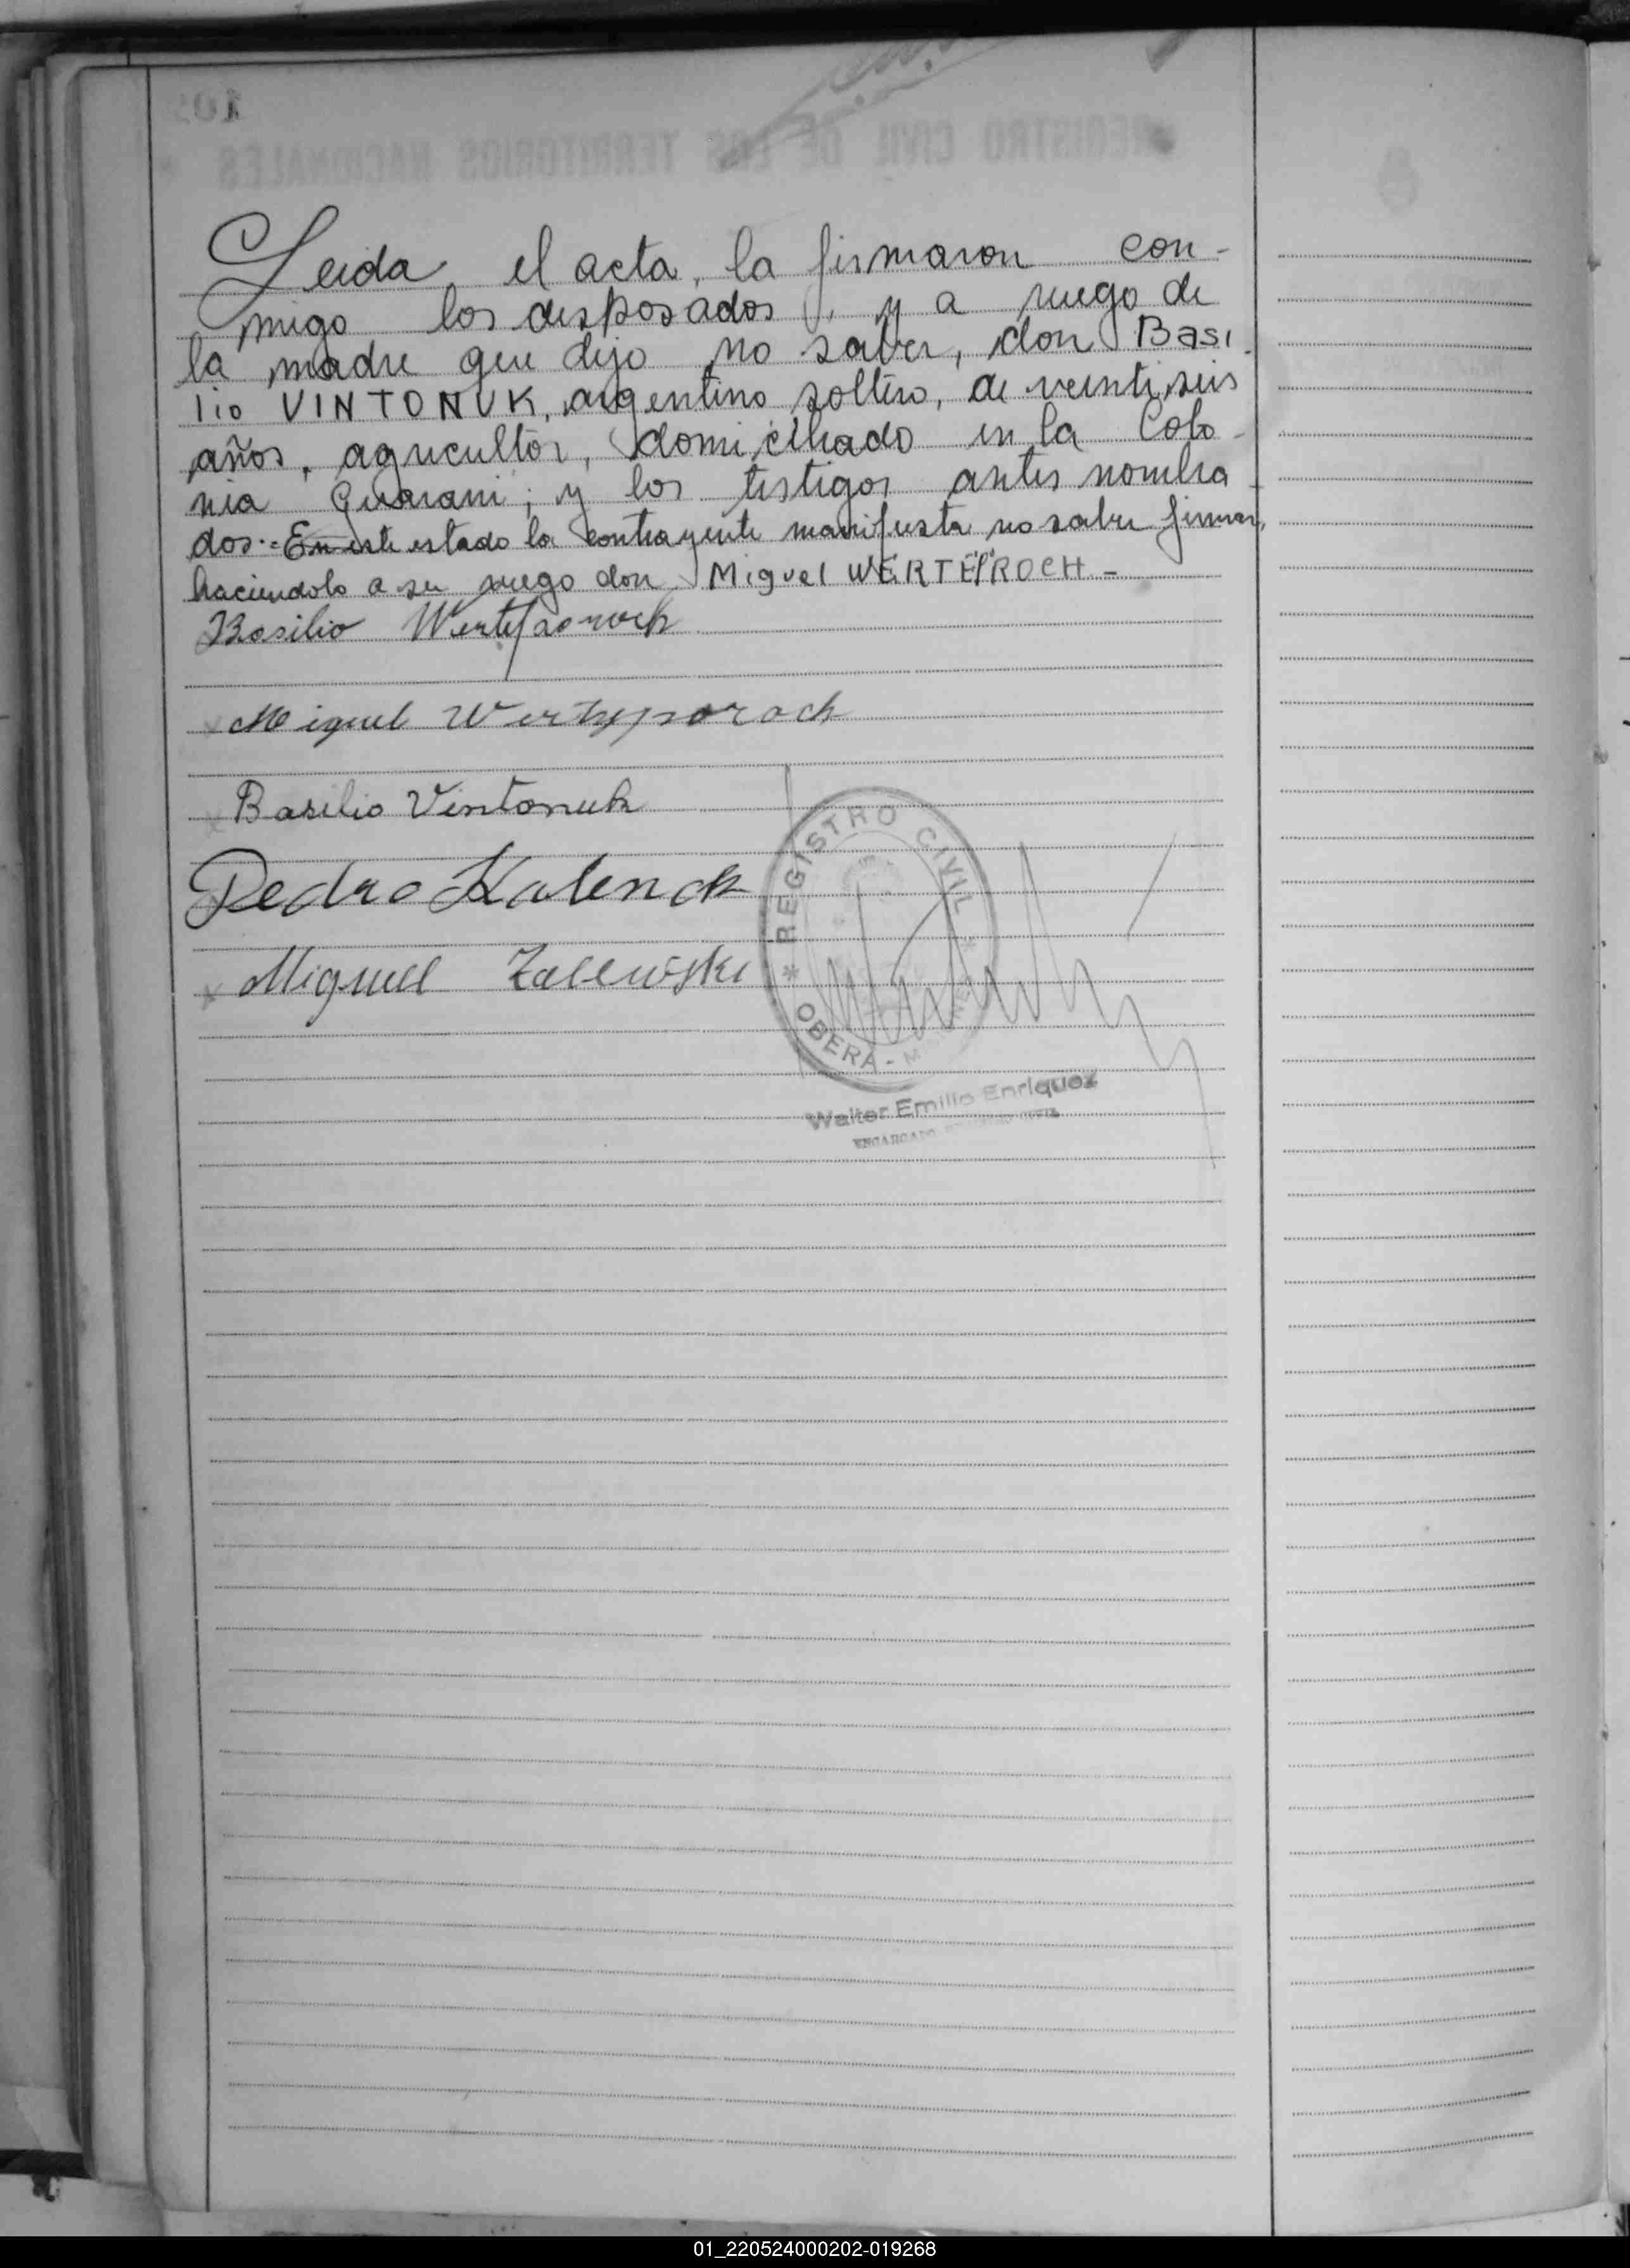 Leida el acta, la firmaron con-
migo los desposados, y a ruego de
la madre que dijo no saber, don Basi-
lio VINTONUK, argentino soltero, de veintiseis
años, agricultor, domiciliado en la Colo-
nia Guarani; y los testigos antes nombra-
dos.=En este estado la contrayente manifiesta no saber firmar,
haciendolo a su ruego don Miguel WERTEPROCH-
Basilio
Miguel Wertyporoch
Basilio Vintonuk
Pedro
Miguel Zalewski
* REGISTRO CIVIL *
OBERA -
Walter Emilio Enriquez
01_220524000202-019268